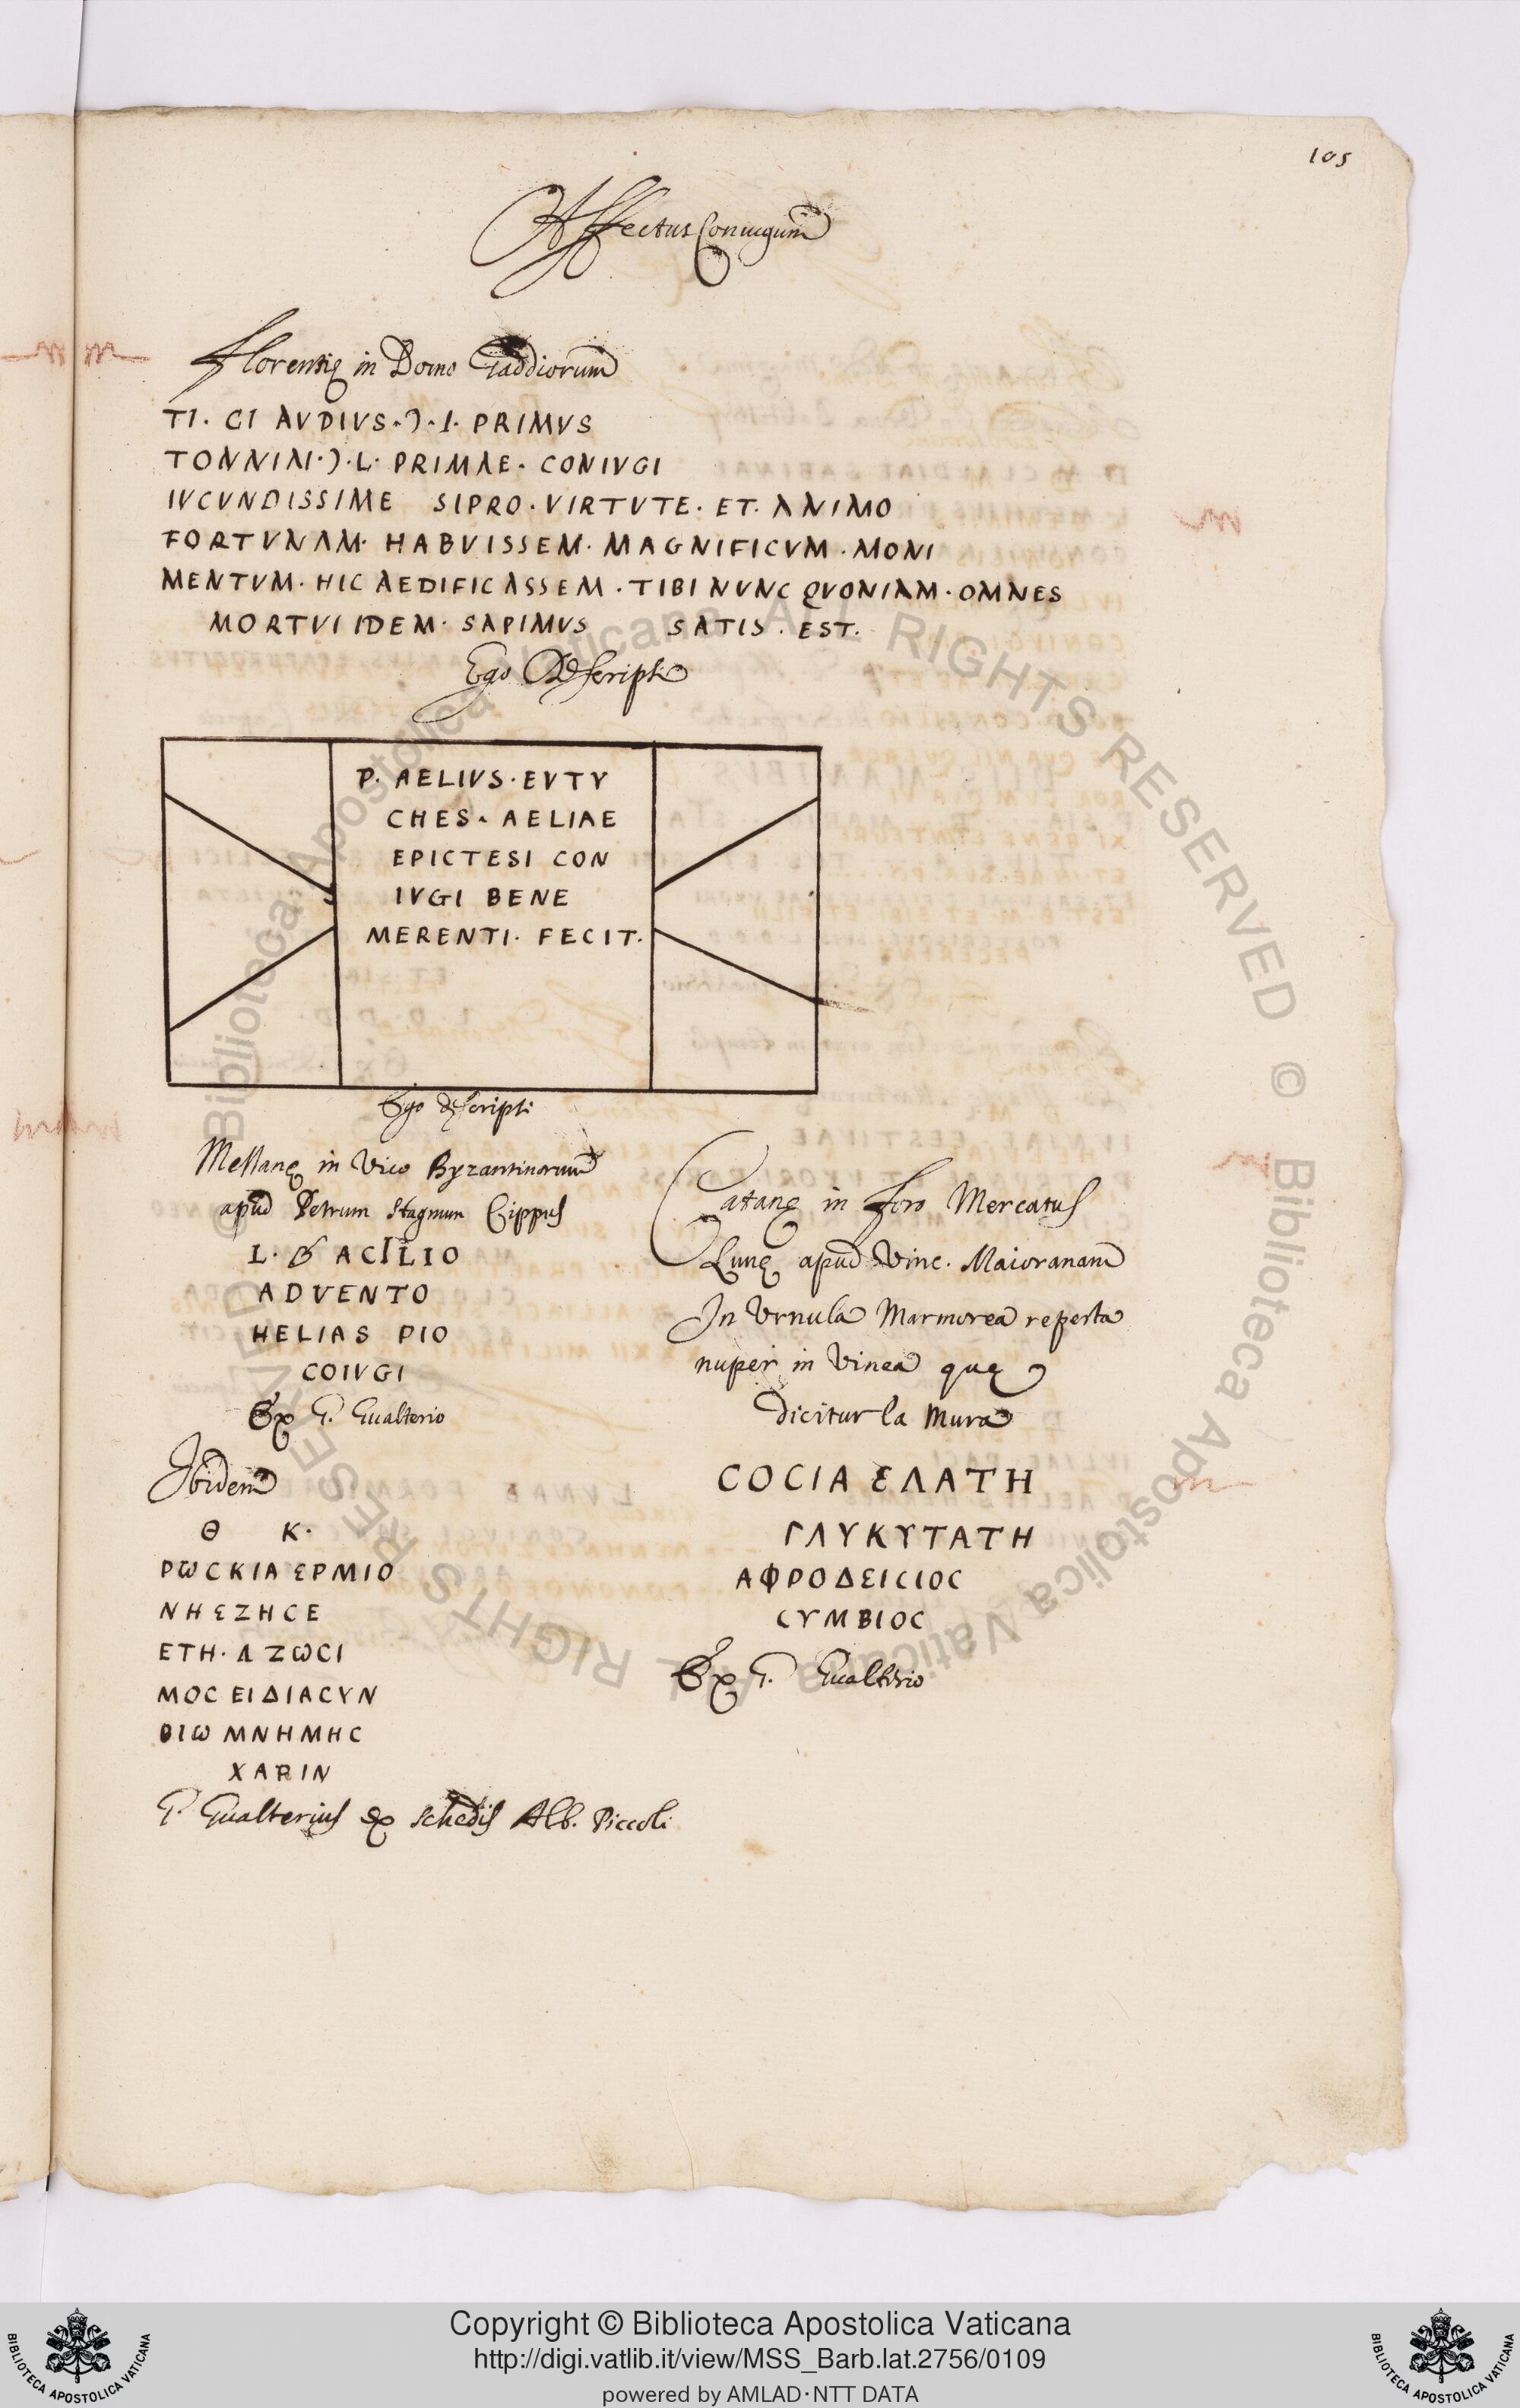 105
Affectus Coniugum
Florentię in Domo Gaddiorum
TI. CI AVDIVS.Ↄ.I. PRIMVS
TONNIM.Ↄ.L. PRIMAE. CONIVGI
IVCVNDISSIME SIPRO.VIRTVTE.ET.ANIMO
FORTVNAM.HABVISSEM.MAGNIFICVM.MONI
MENTVM.HIC AEDIFICASSEM.TIBI NVNC QVONIAM.OMNES
MORTVI IDEM.SAPIMVS SATIS.EST.
Ego Descripsi
P. AELIVS.EVTY
CHES. AELIAE
EPICTESI CON
IVGI BENE
MERENTI. FECIT.
Ego descripsi
Messanę in Vico Byzantinorum
apud Petrum Stagnum Cippus
L. B ACILIO
ADVENTO
HELIAS PIO
COIVGI
Ex G. Gualterio
Ibidem
Θ Κ.
ΡωCΚΙΑ ΕΡΜΙΟ
ΝΗ ΕΖΗCΕ
ΕΤΗ. Λ ΖωCΙ
ΜΟC ΕΙΔΙΑCΥΝ
ΘΙω ΜΝΗΜΗC
ΧΑΡΙΝ
G. Gualterius ex schedis Alb. Piccoli
Catanę in Foro Mercatus
Lunę apud Vinc. Maioranam
In Vrnula Marmorea reperta
nuper in Vinea quę
dicitur la Mura
COCIA ΕΛΑΤΗ
ΓΛΥΚΥΤΑΤΗ
ΑΦΡΟΔΕΙCΙΟC
CΥΜΒΙΟC
Ex G. Gualterio
© Biblioteca Apostolica Vaticana ALL RIGHTS RESERVED © Biblioteca Apostolica Vaticana ALL RIGHTS RESERVED
Copyright © Biblioteca Apostolica Vaticana
http://digi.vatlib.it/view/MSS_Barb.lat.2756/0109
powered by AMLAD·NTT DATA
BIBLIOTECA APOSTOLICA VATICANA
BIBLIOTECA APOSTOLICA VATICANA